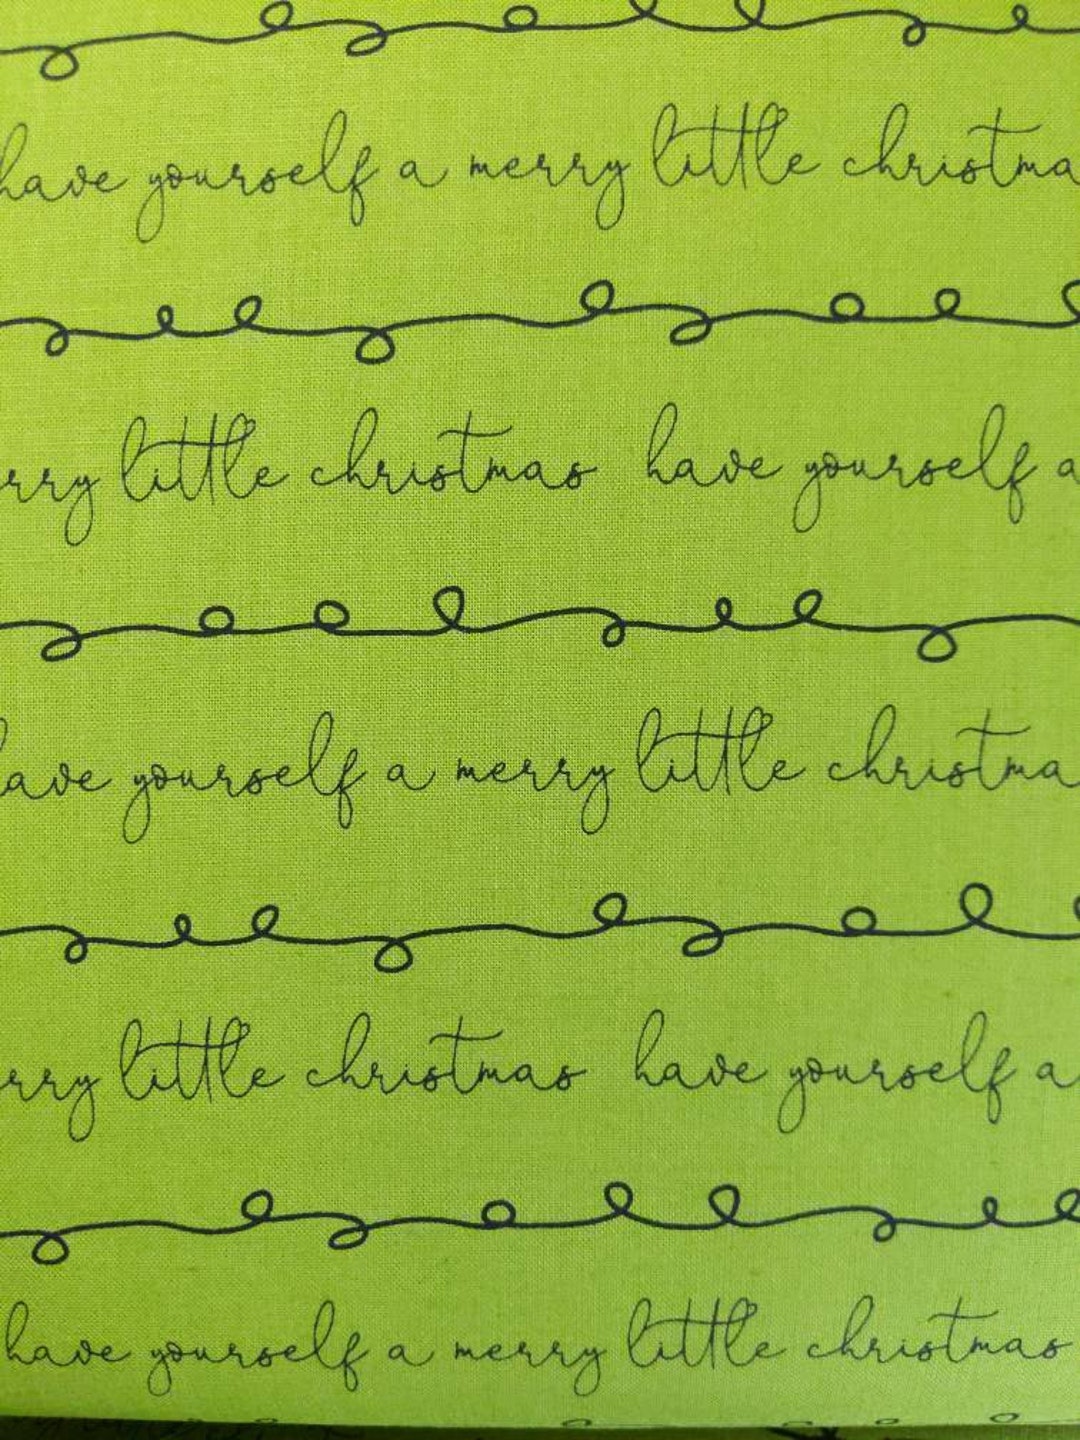 have yourself a merry little christma
rry little christmas have yourself a
ave yourself a merry little christma
rry little christmas have yourself a
have yourself a merry little christmas